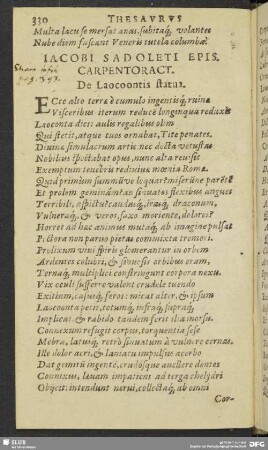 330 THESAVRVS
Multa lacu se mersat anas, subitaq́; volantes
Nube diem fuscant Veneris tutela columbæ.
IACOBI SADOLETI EPIS.
CARPENTORACT.
De Laocoontis statua.
ECce alto terræ è cumulo ingentisq́; ruinæ
Visceribus iterum reducē longinqua reduxit
Laoconta dies: aulis regalibus olim
Qui stetit, atque tuos ornabat, Tite penates.
Divinæ simulacrum artis nec docta vetustas
Nobilius spectabat opus, nunc alta revisit
Exemptum tenebris redivivæ mœnia Romæ.
Quid primum summúve loquar? miserúne parētē
Et prolem geminā? an sinuatos flexibus angues
Terribili aspectu? caudasq́; irasq́; draconum,
Vulneraq́; & veros, saxo moriente, dolores?
Horret ad hæc animus mutaq́; ab imagine pulsat
Pectora non parvo pietas commixta tremori.
Prolixum vivi spiris glomerantur in orbem
Ardentes colubri, & sinuosis orbibus errant,
Ternaq́; multiplici constringunt corpora nexu.
Vix oculi sufferre valent crudele tuendo
Exitium, casusq́; feros: micat alter, & ipsum
Laoconta petit, totumq́; infrā́q; supráq́;
Implicat & rabido tandem ferit ilia morsu.
Connexum refugit corpus, torquentia sese
Mēbra, latusq́; retrò sinuatum à vulnere cernas.
Ille dolor acri, & laniatu impulsus acerbo
Dat gemitū ingentē, crudosq́ue avellere dentes
Connixus, lævam impatiens ad terga chelydri
Objicit: intendunt nervi, collectaq́; ab omni
Cor-
SLUB